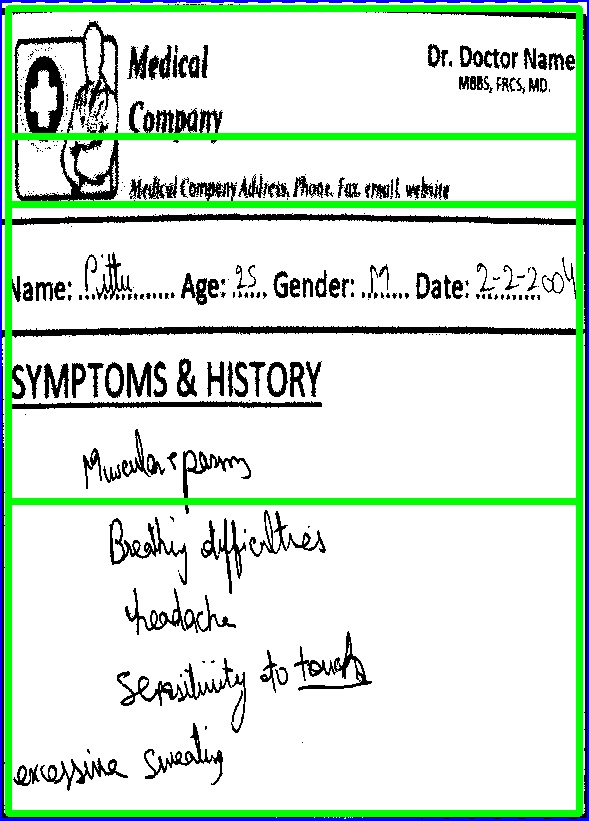 Medical
Company
Dr. Doctor Name
MBBS, FRCS, MD.
Medical Company Address, Phone, Fax, email, website
Name: Pittu Age: 25 Gender: M Date: 2-2-2004
SYMPTOMS & HISTORY
Muscular spasms
Breathing difficulties
headache
Sensitivity to touch
excessive sweating